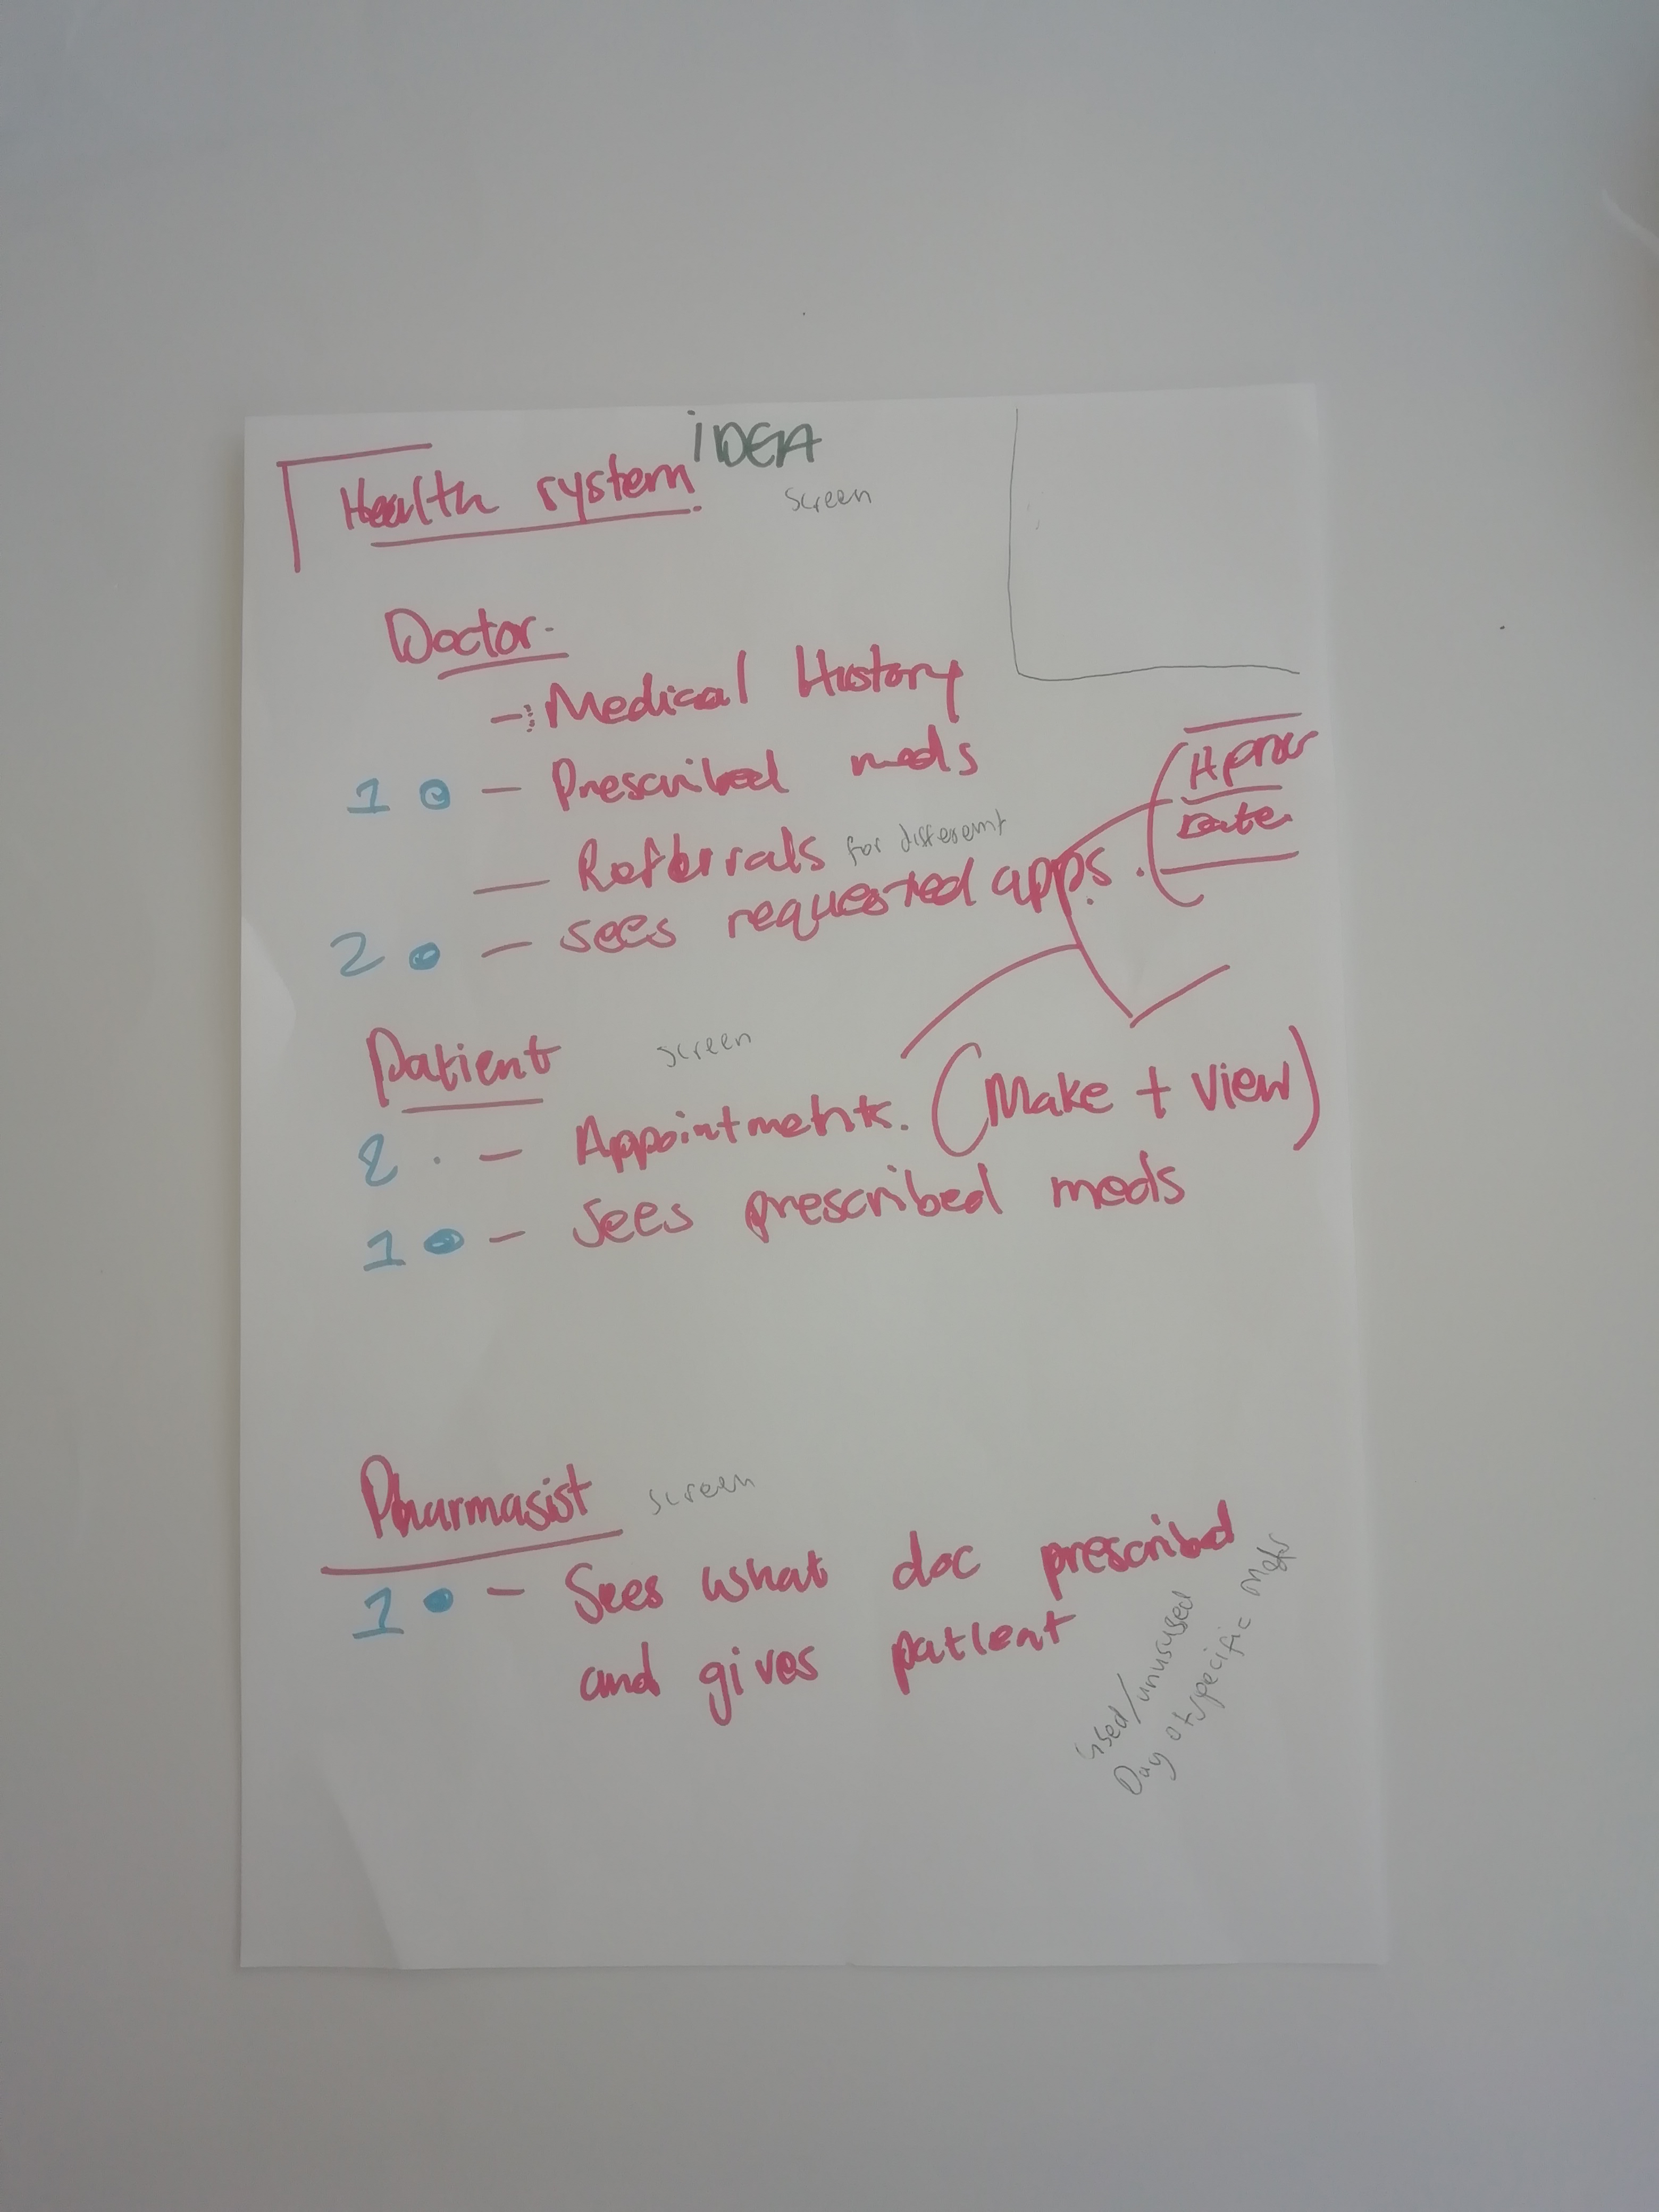 iDEA
Health system.
screen
Doctor.
- Medical History
1 - Prescribed meds
- Referrals for different
2 - sees requested apps.
Patient screen
2 - Appointments. (Make + View)
1 - Sees prescribed meds
Pharmasist screen
1 - Sees what doc prescribed
and gives patient
used/unusused
Day of specific